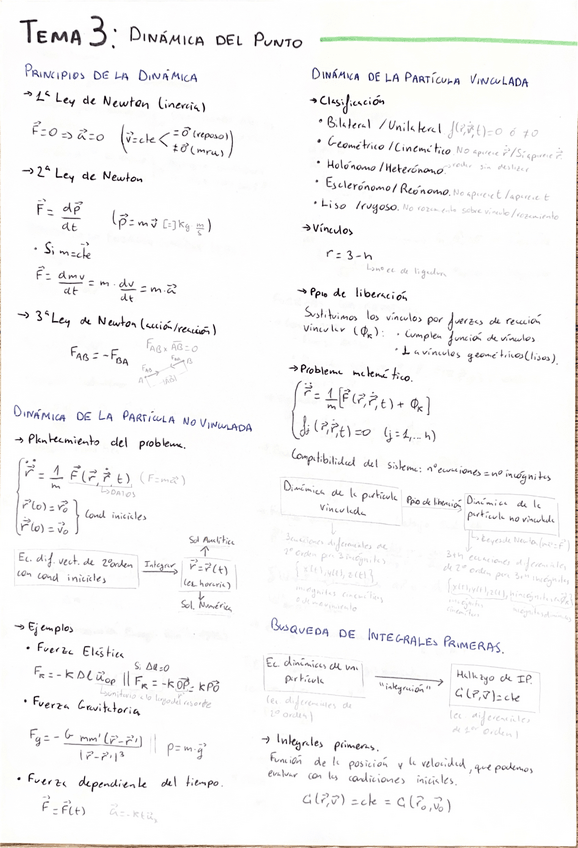 TEMA 3: DINÁMICA DEL PUNTO
PRINCIPIOS DE LA DINÁMICA
→ 1ª Ley de Newton (inercia)
F⃗=0 ⇒ a⃗=0 (v⃗=cte < =0⃗ (reposo)
≠0⃗ (mru))
→ 2ª Ley de Newton
F⃗ = dp⃗/dt (p⃗=m v⃗ [=] kg m/s)
· Si m=cte
F⃗ = dmv/dt = m · dv/dt = m·a⃗
→ 3ª Ley de Newton (acción/reacción)
F_AB = -F_BA
F_AB × AB = 0
DINÁMICA DE LA PARTÍCULA NO VINCULADA
→ Planteamiento del problema.
r⃗̈ = 1/m F⃗(r⃗, r⃗̇, t) (F=ma⃗)
DATOS
r⃗(0) = r⃗₀
r⃗̇(0) = v⃗₀
Cond iniciales
Sol Analítica
Ec. dif. vect. de 2º orden
con cond iniciales
Integrar
r⃗ = r⃗(t)
(ec horaria)
Sol. Numérica
→ Ejemplos
· Fuerza Elástica
F_k = -K Δl u⃗_OP || Si Δl₀=0 F_k = -K OP⃗ = K PO⃗
· Fuerza Gravitatoria
Fg = - G mm' (r⃗-r⃗') / |r⃗-r⃗'|³ || p = m·g⃗
· Fuerza dependiente del tiempo.
F⃗ = F⃗(t)
DINÁMICA DE LA PARTÍCULA VINCULADA
→ Clasificación
· Bilateral / Unilateral f(r⃗,r⃗̇,t)=0 ó ≠0
· Geométrico / Cinemático. No aparece r⃗̇ / Si aparece r⃗̇.
· Holónomo / Heterónomo. rodar sin deslizar
· Esclerónomo / Reónomo. No aparece t / aparece t
· Liso / rugoso. No rozamiento sobre vínculo / rozamiento
→ Vínculos
r = 3 - h
→ Ppio de liberación
Sustituimos los vínculos por fuerzas de reacción
vincular (Φ_k): · Cumplen función de vínculos
· ⊥ a vínculos geométricos (lisos).
→ Problema matemático.
r⃗̈ = 1/m [F⃗(r⃗, r⃗̇, t) + Φ_k]
f_j (r⃗, r⃗̇, t) = 0 (j=1,... h)
Compatibilidad del sistema: nº ecuaciones = nº incógnitas
Dinámica de la partícula
vinculada
Ppio de liberación
Dinámica de la
partícula no vinculada
Ecuaciones diferenciales de
2º orden por 3 incógnitas
3+h ecuaciones diferenciales
de 2º orden por 3+h incógnitas
BUSQUEDA DE INTEGRALES PRIMERAS.
Ec. dinámicas de una
partícula
"integración"
Hallazgo de IP.
G(r⃗,v⃗)=cte
(ec diferenciales de
2º orden)
(ec diferenciales
de 1er Orden)
→ Integrales primeras.
Función de la posición y la velocidad, que podemos
evaluar con las condiciones iniciales.
G(r⃗,v⃗) = cte = G(r⃗₀,v⃗₀)